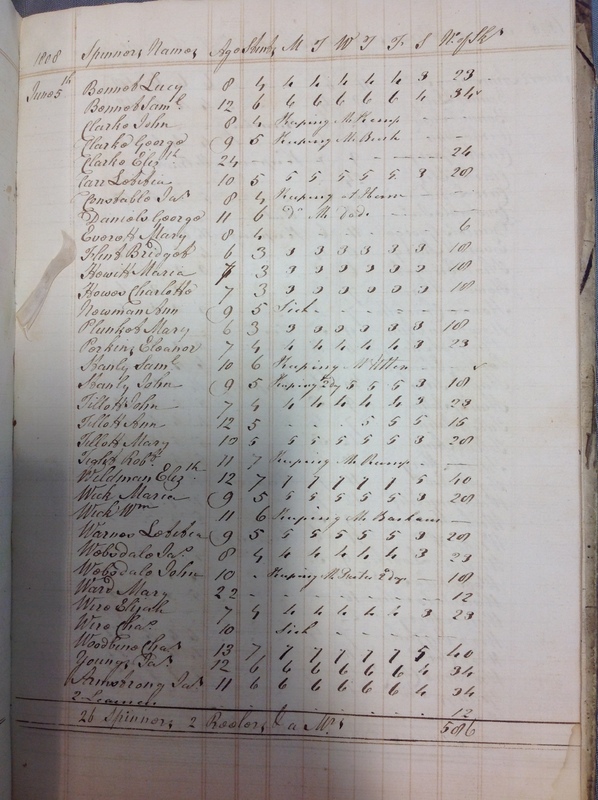 1808 Spinners Names Age Stint M T W T F S No. of Sks
June 5th Bennet Lucy 8 4 4 4 4 4 4 3 23
Bennet Saml. 12 6 6 6 6 6 6 4 34
Clarke John 8 4 Keeping Mr Kemp - -
Clarke George 9 5 Keeping Mr - -
Clarke Elizth. 24 - - - - - - - 24
Carr Letitia 10 5 5 5 5 5 5 3 28
Constable Jas. 8 4 Keeping at Home - -
Daniels George 11 6 Do. Mr - -
Everett Mary 8 4 - - - - - - 6
Flint Bridget 6 3 3 3 3 3 3 3 18
Howitt Maria 7 3 3 3 3 3 3 3 18
Howes Charlotte 7 3 3 3 3 3 3 3 18
Newman Ann 9 5 Sick - - - - -
Plunket Mary 6 3 3 3 3 3 3 3 18
Perkins Eleanor 7 4 4 4 4 4 4 3 23
Stanly Saml. 10 6 Keeping Mr - -
Stanly John 9 5 Keeping 2 Dys 5 5 5 3 18
Tillott John 7 4 4 4 4 4 4 3 23
Tillott Ann 12 5 - - - 5 5 5 15
Tillott Mary 10 5 5 5 5 5 5 3 28
Tight Robt. 11 7 Keeping Mr Rump - -
Wildman Elizth. 12 7 7 7 7 7 7 5 40
Wick Maria 9 5 5 5 5 5 5 3 28
Wick Wm 11 6 Keeping Mr Barham -
Warnes Letitia 9 5 5 5 5 5 5 3 28
Websdale Jas. 8 4 4 4 4 4 4 3 23
Websdale John 10 - Keeping Mr 2 Dys - 18
Ward Mary 22 - - - - - - - 12
Wire Elijah 7 4 4 4 4 4 4 3 23
Wire Chas. 10 Sick - - - - -
Woodbine Chas. 13 7 7 7 7 7 7 5 40
Youngs Jas. 12 6 6 6 6 6 6 4 34
Armstrong Jas. 11 6 6 6 6 6 6 4 34
2 Learners - - - - - - 12
26 Spinners 2 Reelers & a Mrs 586